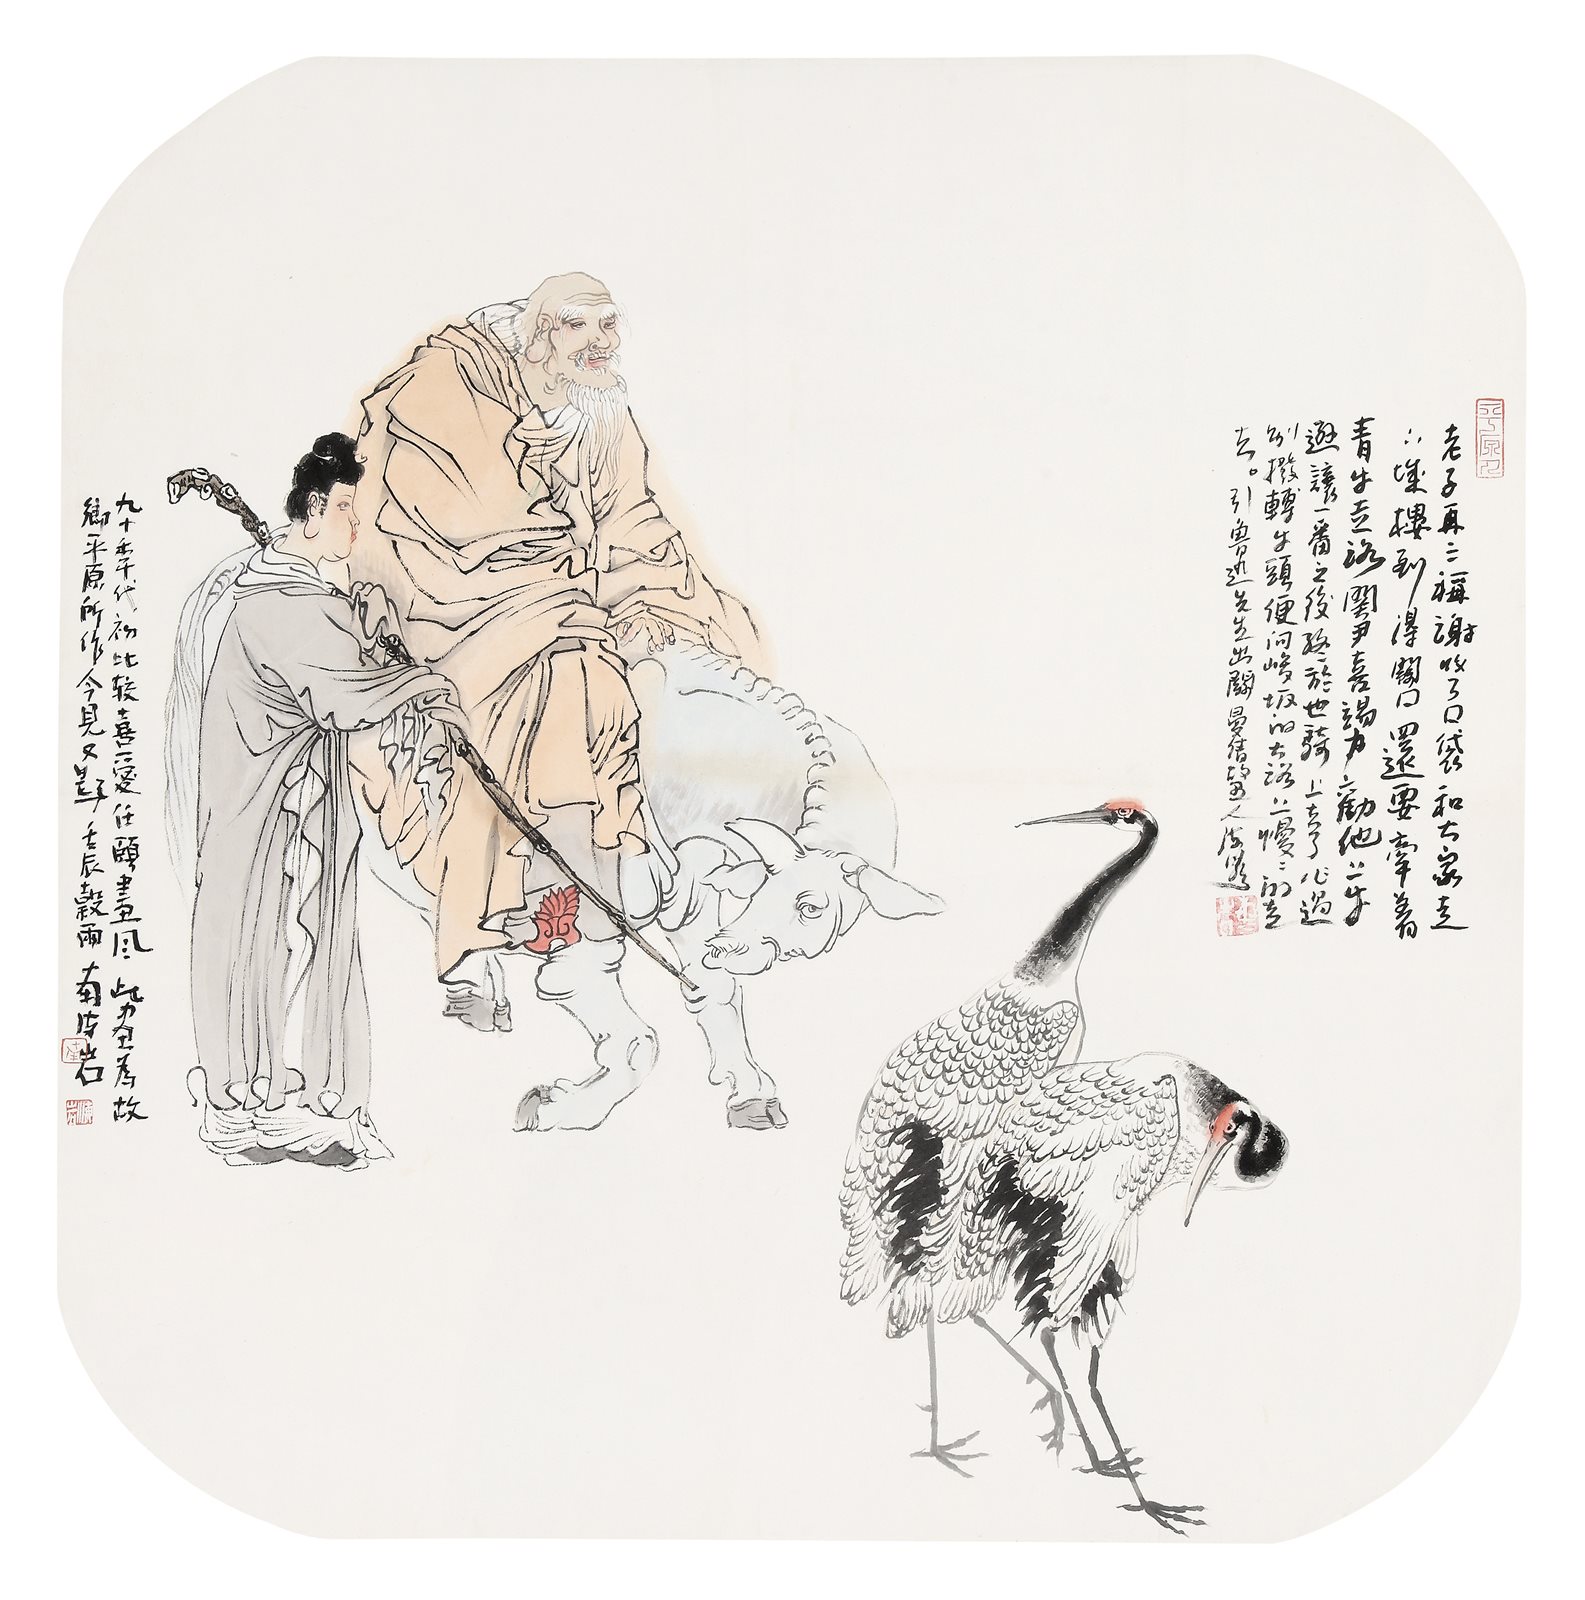 老子再三稱謝收了口袋和大家走
下城樓到得關口還要牽着
青牛走路關尹喜竭力勸他上牛
遜讓一番之後終於也騎上去了作過
別撥轉牛頭便向峻坂的大路上慢〻的走
去。引魯迅先生出關曼倩故里人海岩
九十年代初比較喜愛任頤畫風此乃余為故
鄉平原所作今見又題壬辰穀雨南海岩